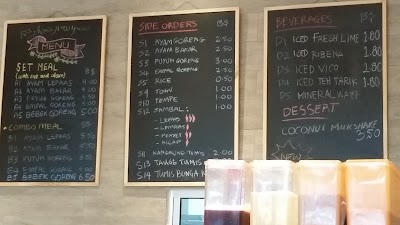 MENU
SET MEAL
B$
A1 AYAM LEPAS
A2 AYAM BAKAR
A3 PUYUH GORENG
A4 DAGING GORENG
A5 BEBEK GORENG 5.00
COMBO MEAL
B1 AYAM LEPAS 5.50
B2 AYAM BAKAR 5.50
B3 PUYUH GORENG
B5 BEBEK GORENG
SIDE ORDERS B$
S1 AYAM GORENG 2.50
S2 AYAM BAKAR 2.50
S3 PUYUH GORENG 3.00
S4 2.50
S5 RICE 0.50
S9 TAHU 1.00
S10 TEMPE 1.00
S12 SAMBAL: 1.00
- LEPAS
- LEMPAS
- PENYET
- HIJAU
S11 KANGKUNG TUMIS 2.00
S13 TAUGE TUMIS
S14 TUMIS BUNGA
BEVERAGES B$
D1 ICED FRESH LIME 1.80
D2 ICED RIBENA 1.80
D3 ICED VICO 2.80
D4 ICED TEH TARIK 1.80
D5 MINERAL WATER
DESSERT
COCONUT MILKSHAKE
3.50
NEW